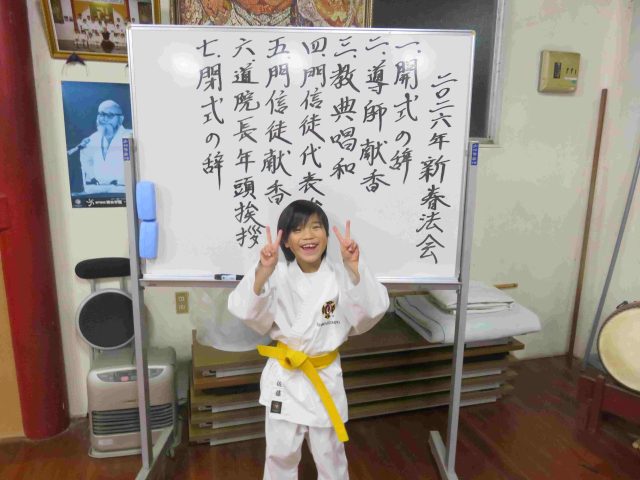 二〇二六年 新春法会
一.開式の辞
二.導師献香
三.教典唱和
四.門信徒代表
五.門信徒献香
六.道院長年頭挨拶
七.閉式の辞
佐藤